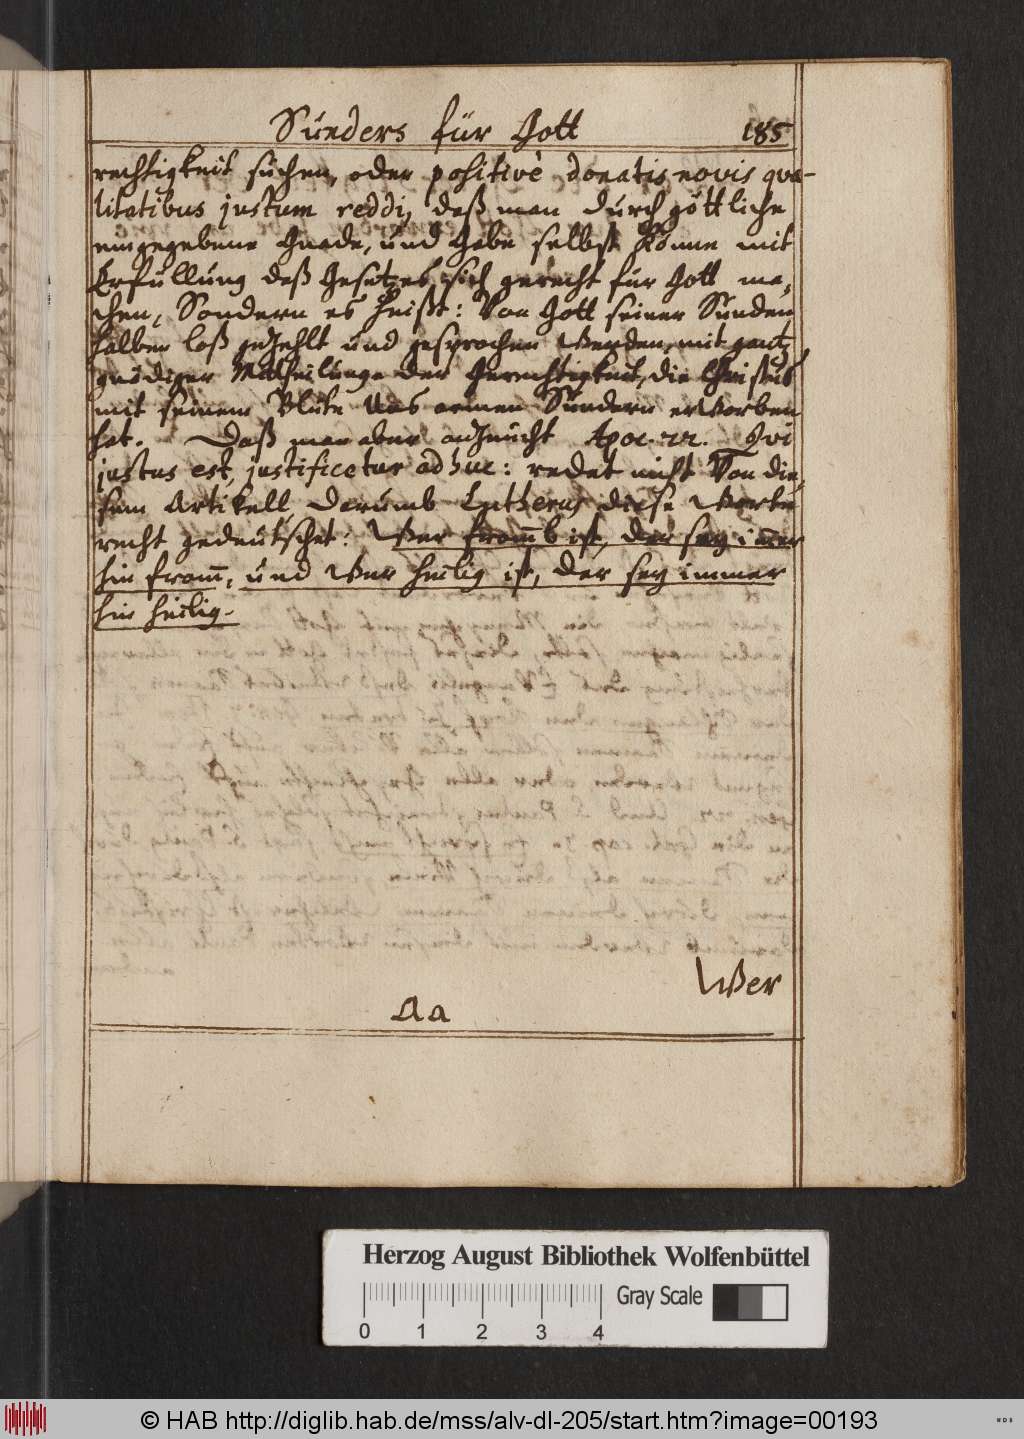 Sünders für Gott 185
rechtigkeit suchen, oder positivè donatis novis qva-
litatibus justum reddi, daß man durch göttliche
eingegebene Gnade, und Gabe selbst könne mit
Erfüllung deß Gesetzes sich gerecht für Gott ma-
chen, Sondern es heißt: Von Gott seiner Sünden
halber loß gezehlt und gesprochen werden, mit gantz
gnädiger Mittheilunge der Gerechtigkeit, die Christus
mit seinem Blute uns armen Sündern erworben
hat. Daß man aber anzeucht Apoc. 22. Qvi
justus est, justificetur adhuc: redet nicht Von die-
sem Artikell, darumb Lutherus diese Worte
recht gedeutschet: Wer fromb ist, der sey immer
hin from, und Wer heilig ist, der sey immer
hin heilig.
Wer
Aa
Herzog August Bibliothek Wolfenbüttel
Gray Scale
0 1 2 3 4
© HAB http://diglib.hab.de/mss/alv-dl-205/start.htm?image=00193
WDB